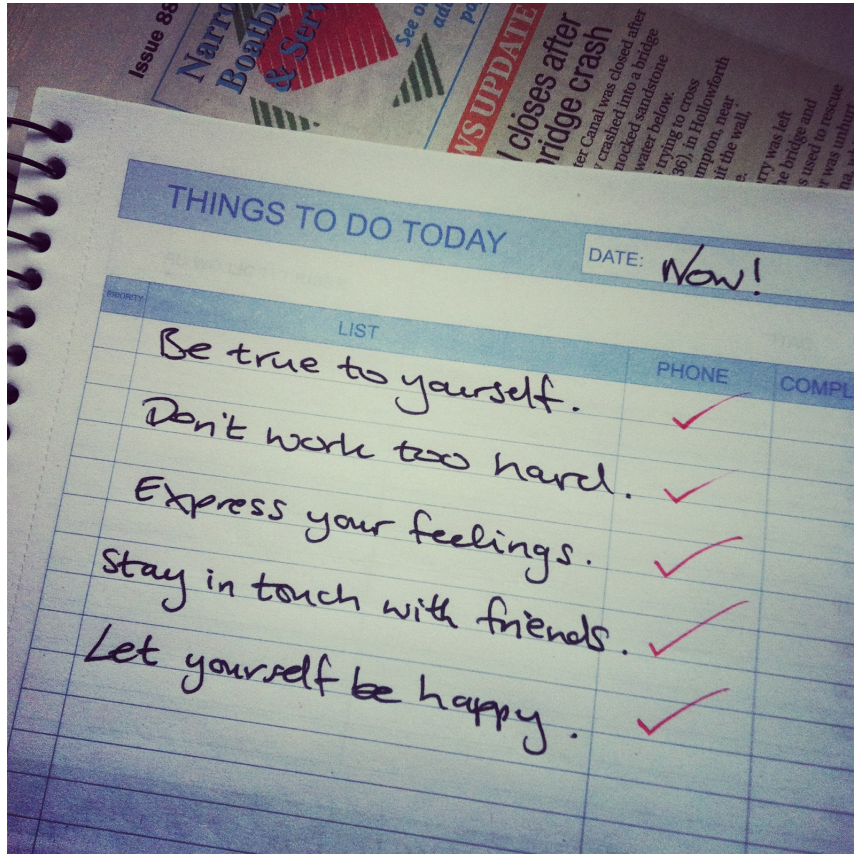 Issue 88
Narro
Boatbu
& Serv
See o
ad
po
WS UPDATE
closes after
ridge crash
ter Canal was closed after
crashed into a bridge
nocked sandstone
water below.
trying to cross
36), in Hollowforth
mpton, near
it the wall,
e.
rry was left
e bridge and
s used to rescue
r was unhurt
THINGS TO DO TODAY
DATE: Now!
PRIORITY
LIST
PHONE
COMPL
Be true to yourself.
Don't work too hard.
Express your feelings.
Stay in touch with friends.
Let yourself be happy.